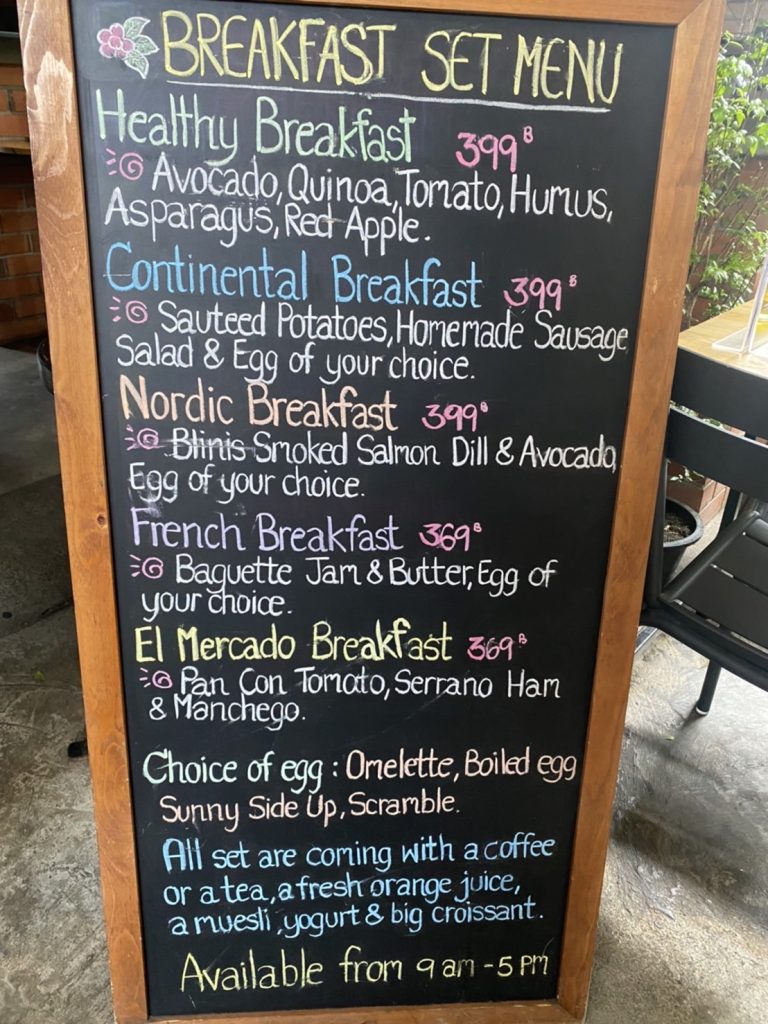 BREAKFAST SET MENU
Healthy Breakfast 399 B
Avocado, Quinoa, Tomato, Humus,
Asparagus, Red Apple.
Continental Breakfast 399 B
Sauteed Potatoes, Homemade Sausage
Salad & Egg of your choice.
Nordic Breakfast 399 B
Blinis Smoked Salmon Dill & Avocado,
Egg of your choice.
French Breakfast 369 B
Baguette Jam & Butter, Egg of
your choice.
El Mercado Breakfast 369 B
Pan Con Tomato, Serrano Ham
& Manchego.
Choice of egg : Omelette, Boiled egg
Sunny Side Up, Scramble.
All set are coming with a coffee
or a tea, a fresh orange juice,
a muesli, yogurt & big croissant.
Available from 9 am - 5 PM